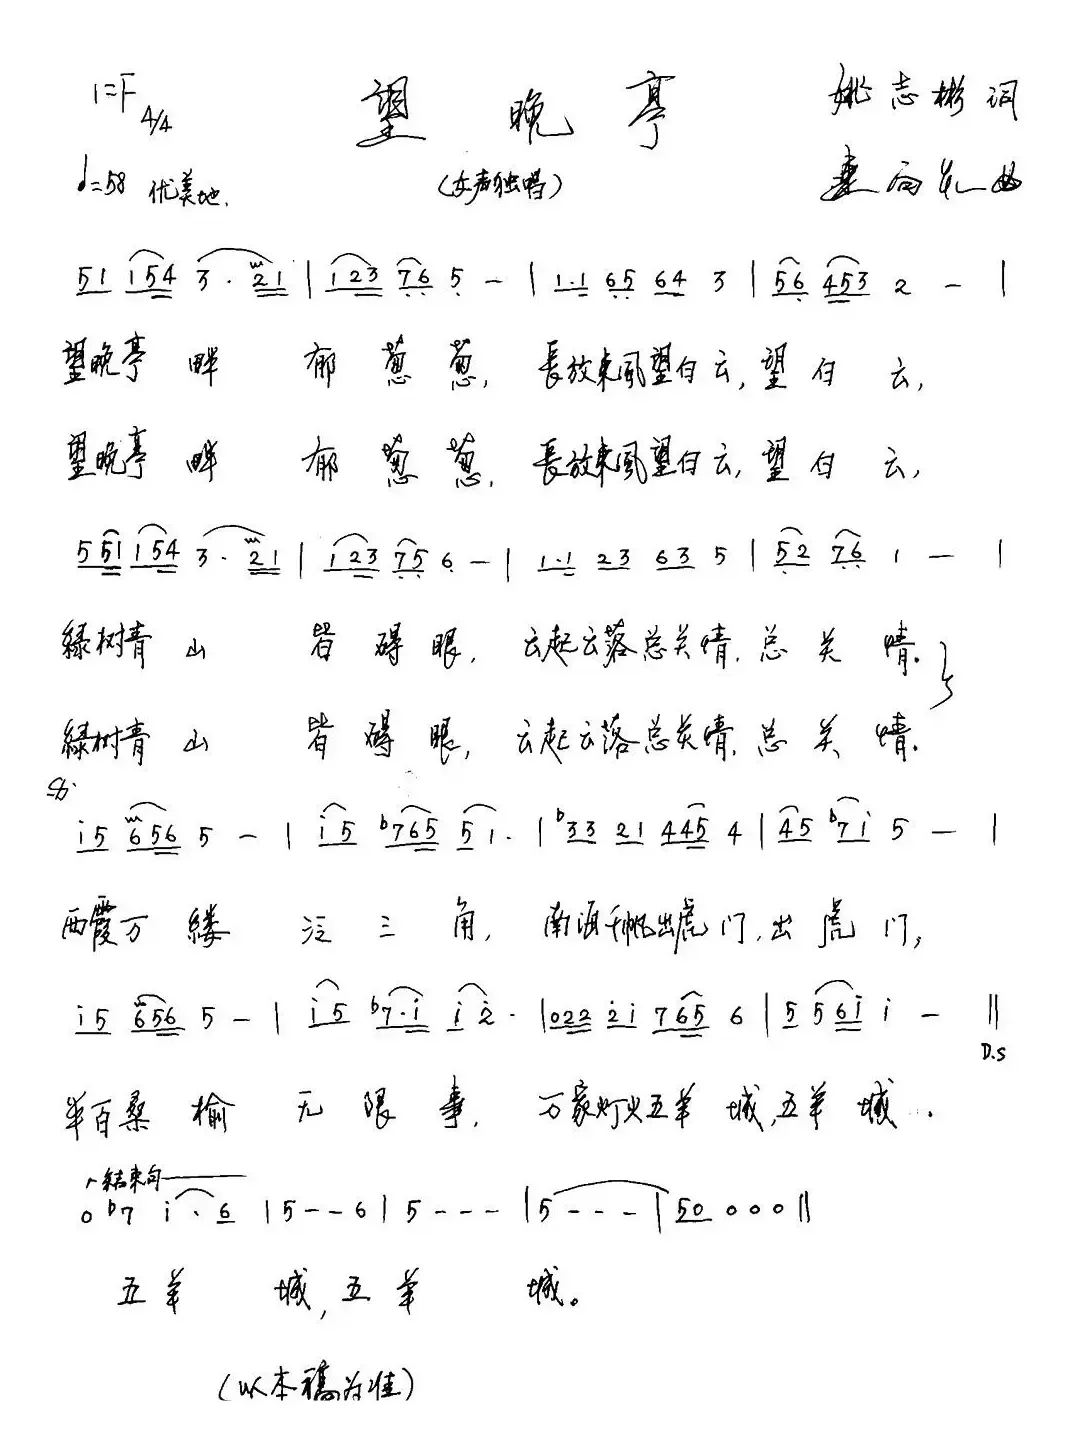 1=F 4/4 望晚亭 姚志彬词
♩=58 优美地. (女声独唱) 曲
51 154 3·21 | 123 76 5 - | 1·1 65 64 3 | 56 453 2 - |
望晚亭畔 郁葱葱, 長放東風望白云, 望白云,
望晚亭畔 郁葱葱, 長放東風望白云, 望白云,
551 154 3·21 | 123 75 6 - | 1·1 23 63 5 | 52 76 1 - |
緑树青山 皆碍眼, 云起云落总关情, 总关情.
緑树青山 皆碍眼, 云起云落总关情, 总关情.
i5 656 5 - | i5 b765 51· | b33 21 445 4 | 45 b7i 5 - |
西霞万缕 泛三角, 南海千帆出虎门, 出虎门;
i5 656 5 - | i5 b7·i i2· | 022 2i 765 6 | 5 56i i - ‖
D.S
半百桑榆 无限事, 万家灯火五羊城, 五羊城.
结束句
0 b7 i·6 | 5--6 | 5--- | 5--- | 50 000 ‖
五羊城, 五羊城。
(以本稿为准)